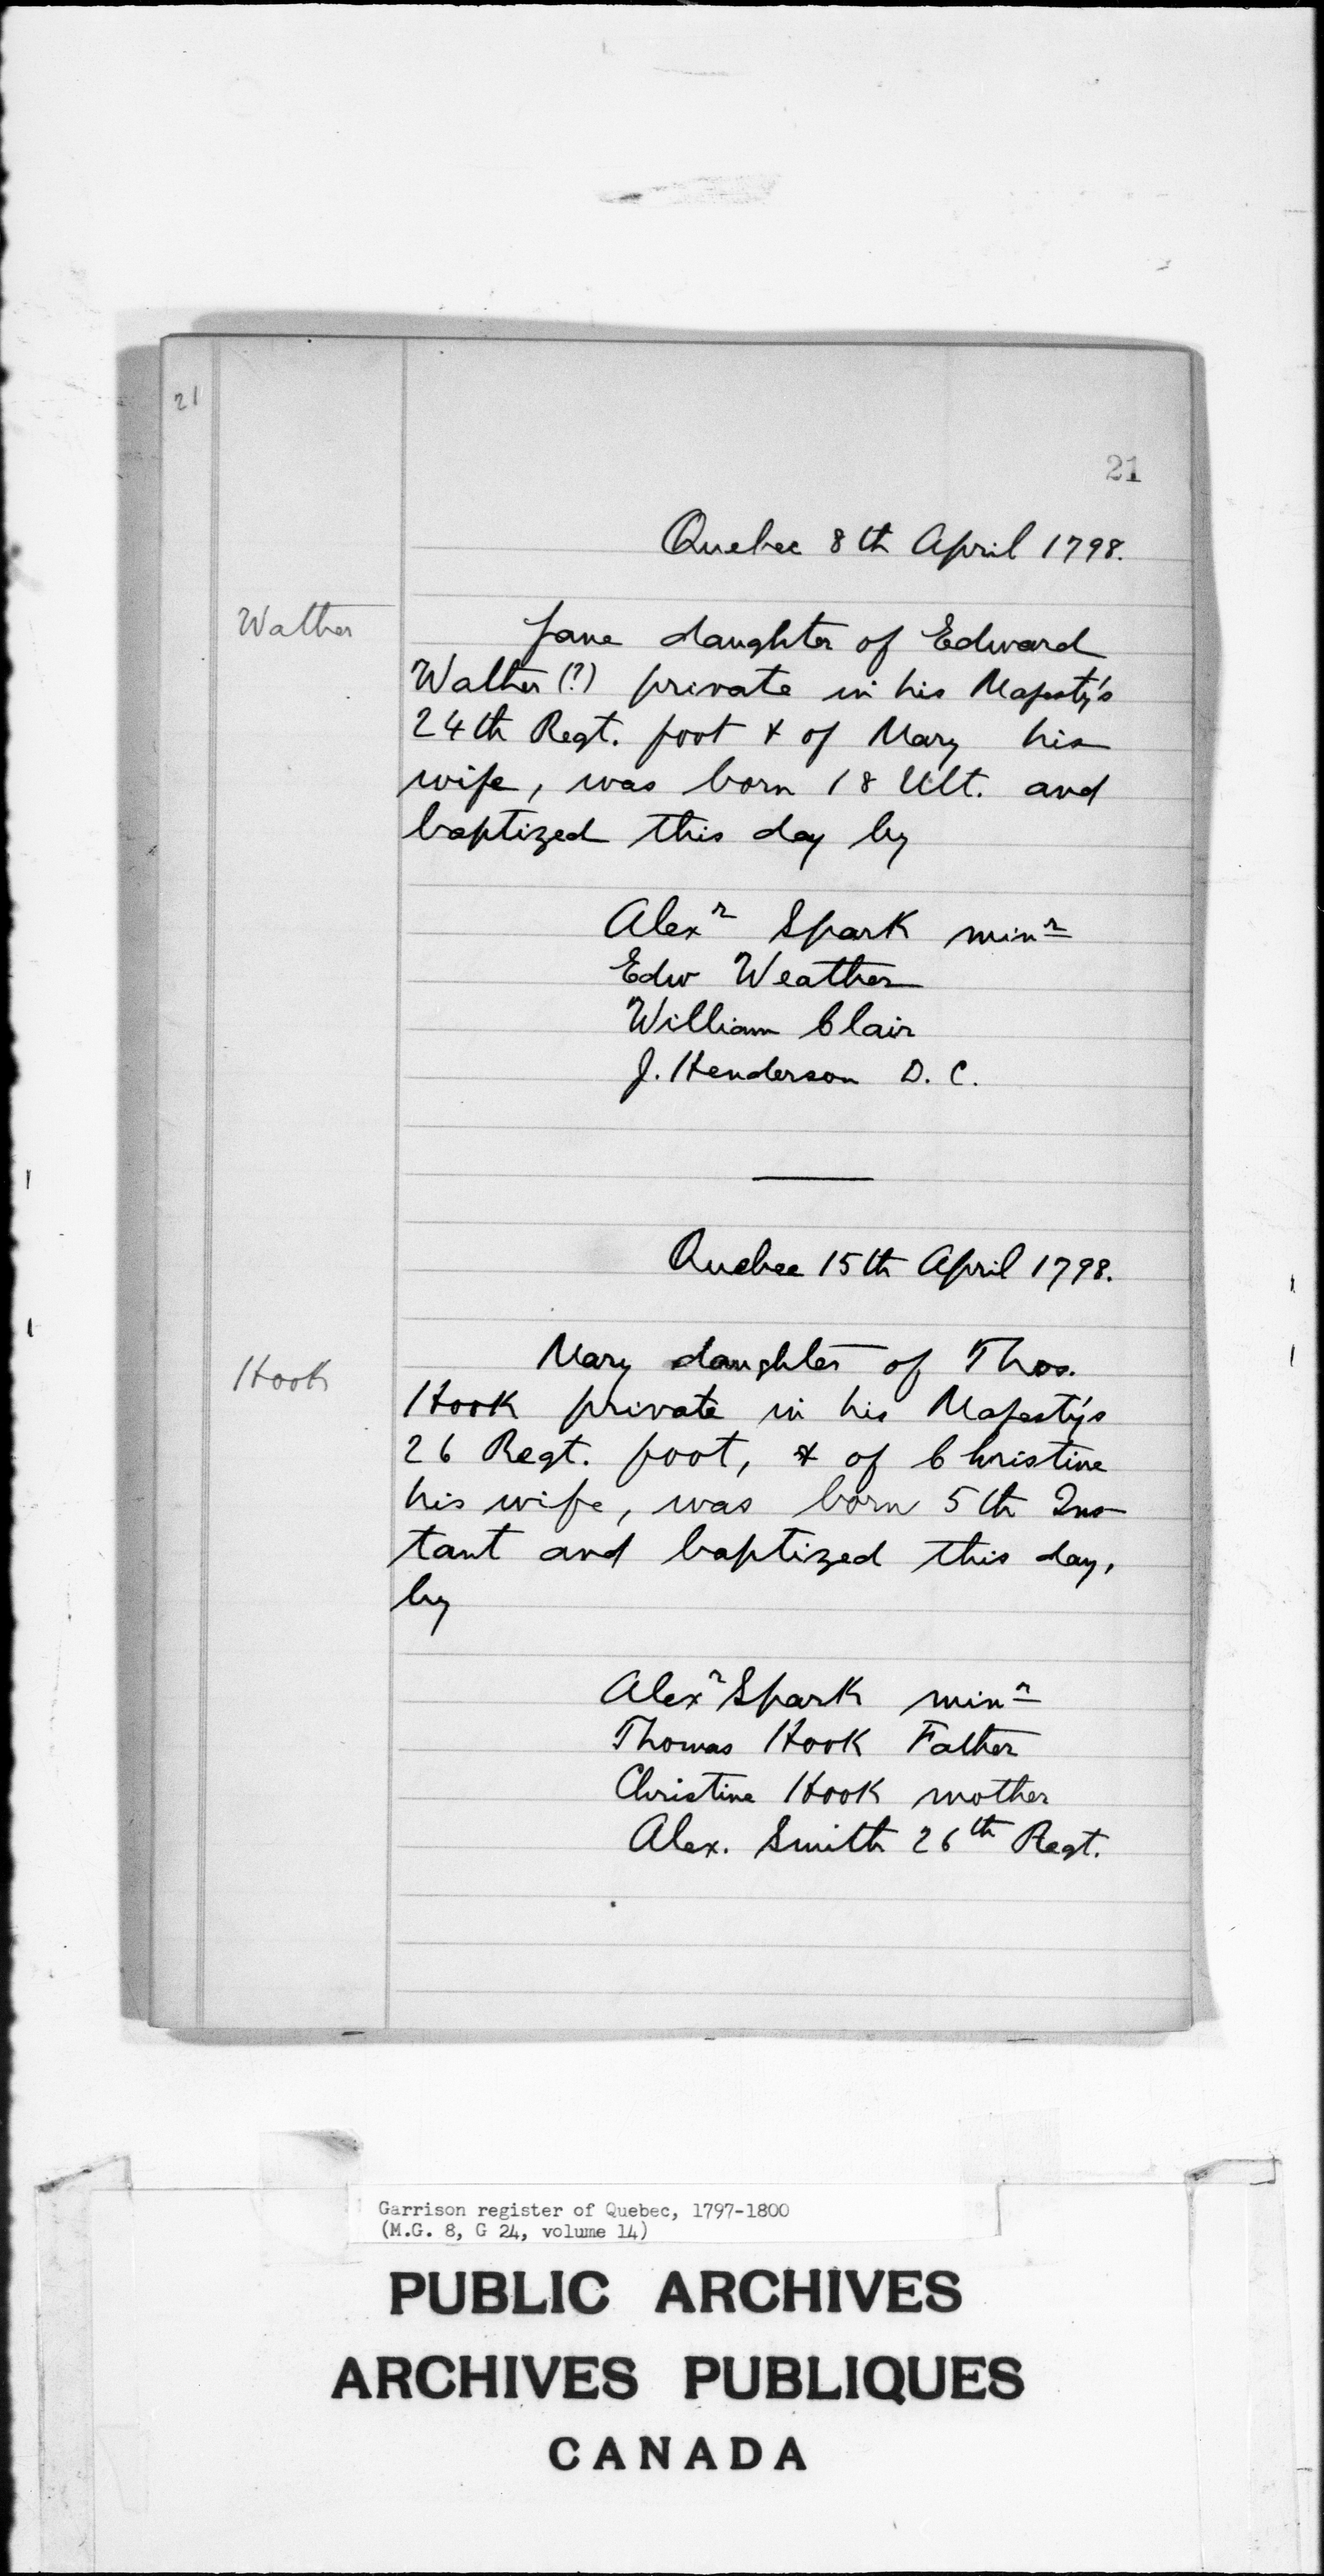 21
21
Quebec 8th April 1798.
Walther
Jane daughter of Edward
Walther (?) private in his Majesty's
24th Regt. foot & of Mary his
wife, was born 18 Ult. and
baptized this day by
Alexr Spark minr
Edw Weather
William Clair
J. Henderson D. C.
Quebec 15th April 1798.
Hook
Mary daughter of Thos.
Hook private in his Majesty's
26 Regt. foot, & of Christine
his wife, was born 5th Ins-
tant and baptized this day,
by
Alexr Spark minr
Thomas Hook Father
Christine Hook mother
Alex. Smith 26th Regt.
Garrison register of Quebec, 1797-1800
(M.G. 8, G 24, volume 14)
PUBLIC ARCHIVES
ARCHIVES PUBLIQUES
CANADA